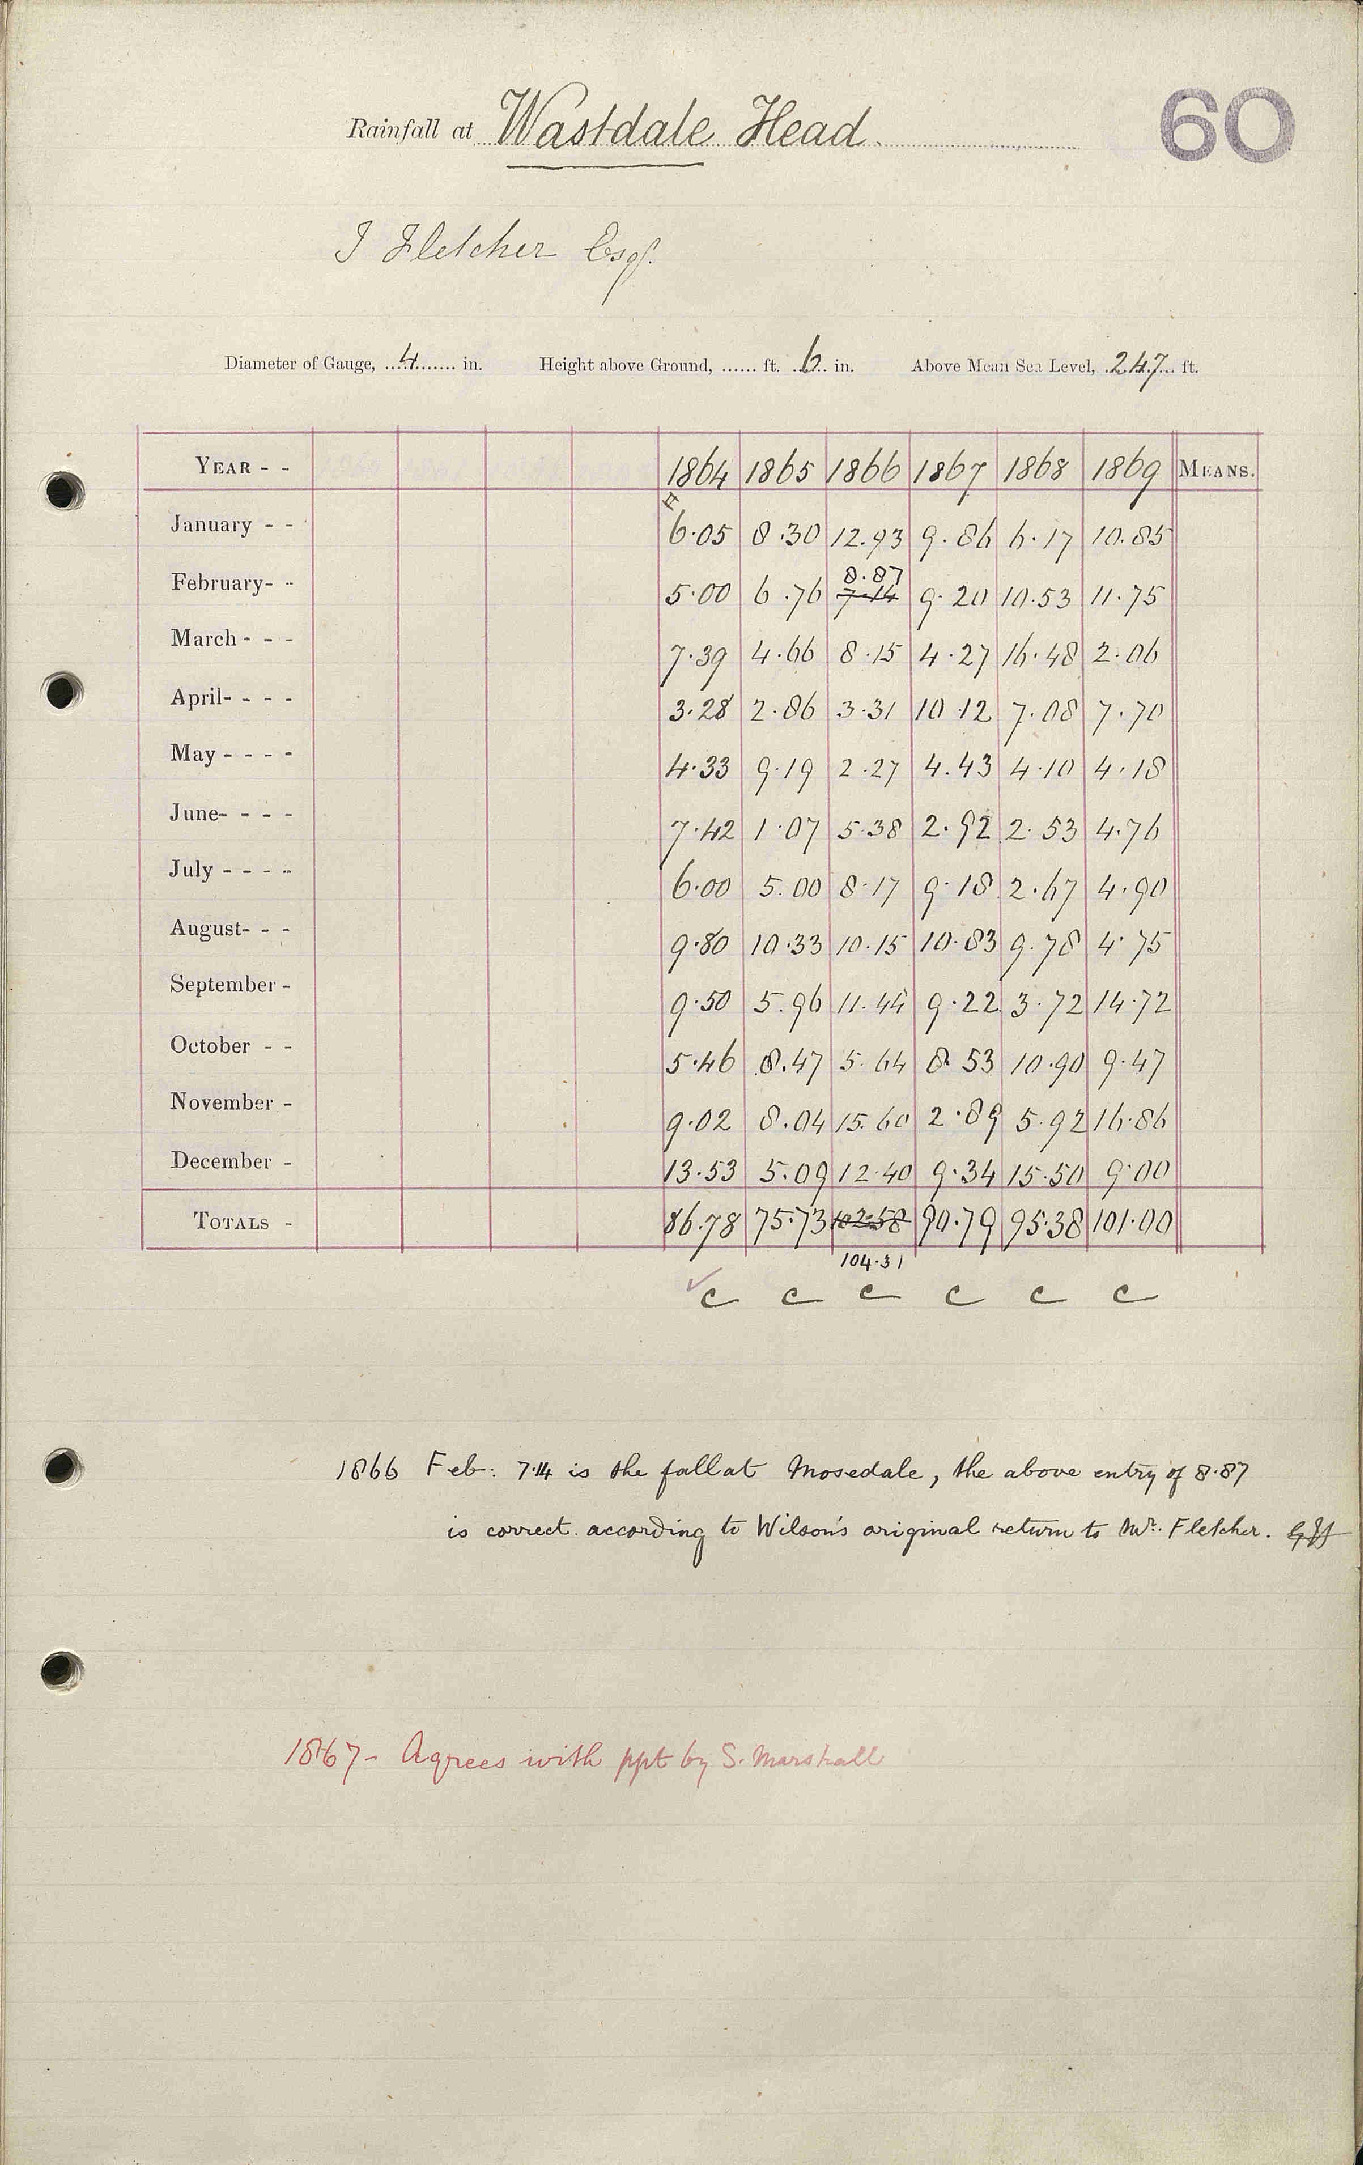 60
Rainfall at Wastdale Head
I Fletcher Esqr.
Diameter of Gauge, 4 in. Height above Ground, ...... ft. 6 in. Above Mean Sea Level, 247 ft.
YEAR - - 1864 1865 1866 1867 1868 1869 MEANS.
January - - 6.05 8.30 12.93 9.86 6.17 10.85
8.87
February- - 5.00 6.76 7.14 9.20 10.53 11.75
March - - - 7.39 4.66 8.15 4.27 16.48 2.06
April- - - - 3.28 2.86 3.31 10.12 7.08 7.70
May - - - - 4.33 9.19 2.27 4.43 4.10 4.18
June- - - - 7.42 1.07 5.38 2.92 2.53 4.76
July - - - - 6.00 5.00 8.17 9.18 2.67 4.90
August- - - 9.80 10.33 10.15 10.83 9.78 4.75
September - 9.50 5.96 11.44 9.22 3.72 14.72
October - - 5.46 8.47 5.64 8.53 10.90 9.47
November - 9.02 8.04 15.60 2.89 5.92 16.86
December - 13.53 5.09 12.40 9.34 15.50 9.00
TOTALS - 86.78 75.73 102.58 90.79 95.38 101.00
104.31
c c c c c c
1866 Feb: 7.14 is the fall at Mosedale, the above entry of 8.87
is correct according to Wilson's original return to Mr. Fletcher.
1867 - Agrees with ppt by S. Marshall